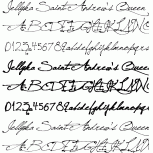 Jellyka Saint Andrew's Queen
ABCDEFGHIJKLMN
0123456789abcdefghijklmnopqr
Jellyka Saint Andrew's Queen
ABCDEFGHIJKLMN
0123456789abcdefghijklmnopqr
Jellyka Saint Andrew's Queen
ABCDEFGHIJKLMN